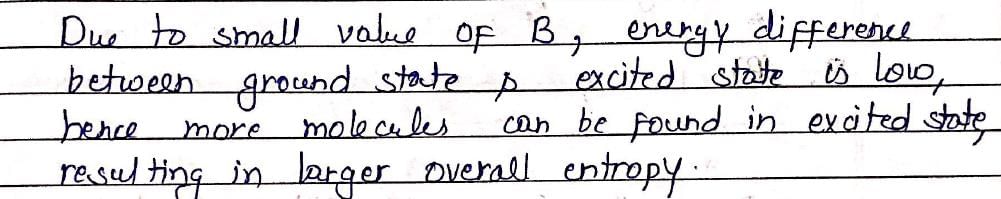 Due to small value OF B, energy difference
between ground state & excited state is low,
hence more molecules can be found in excited state,
resulting in larger overall entropy.